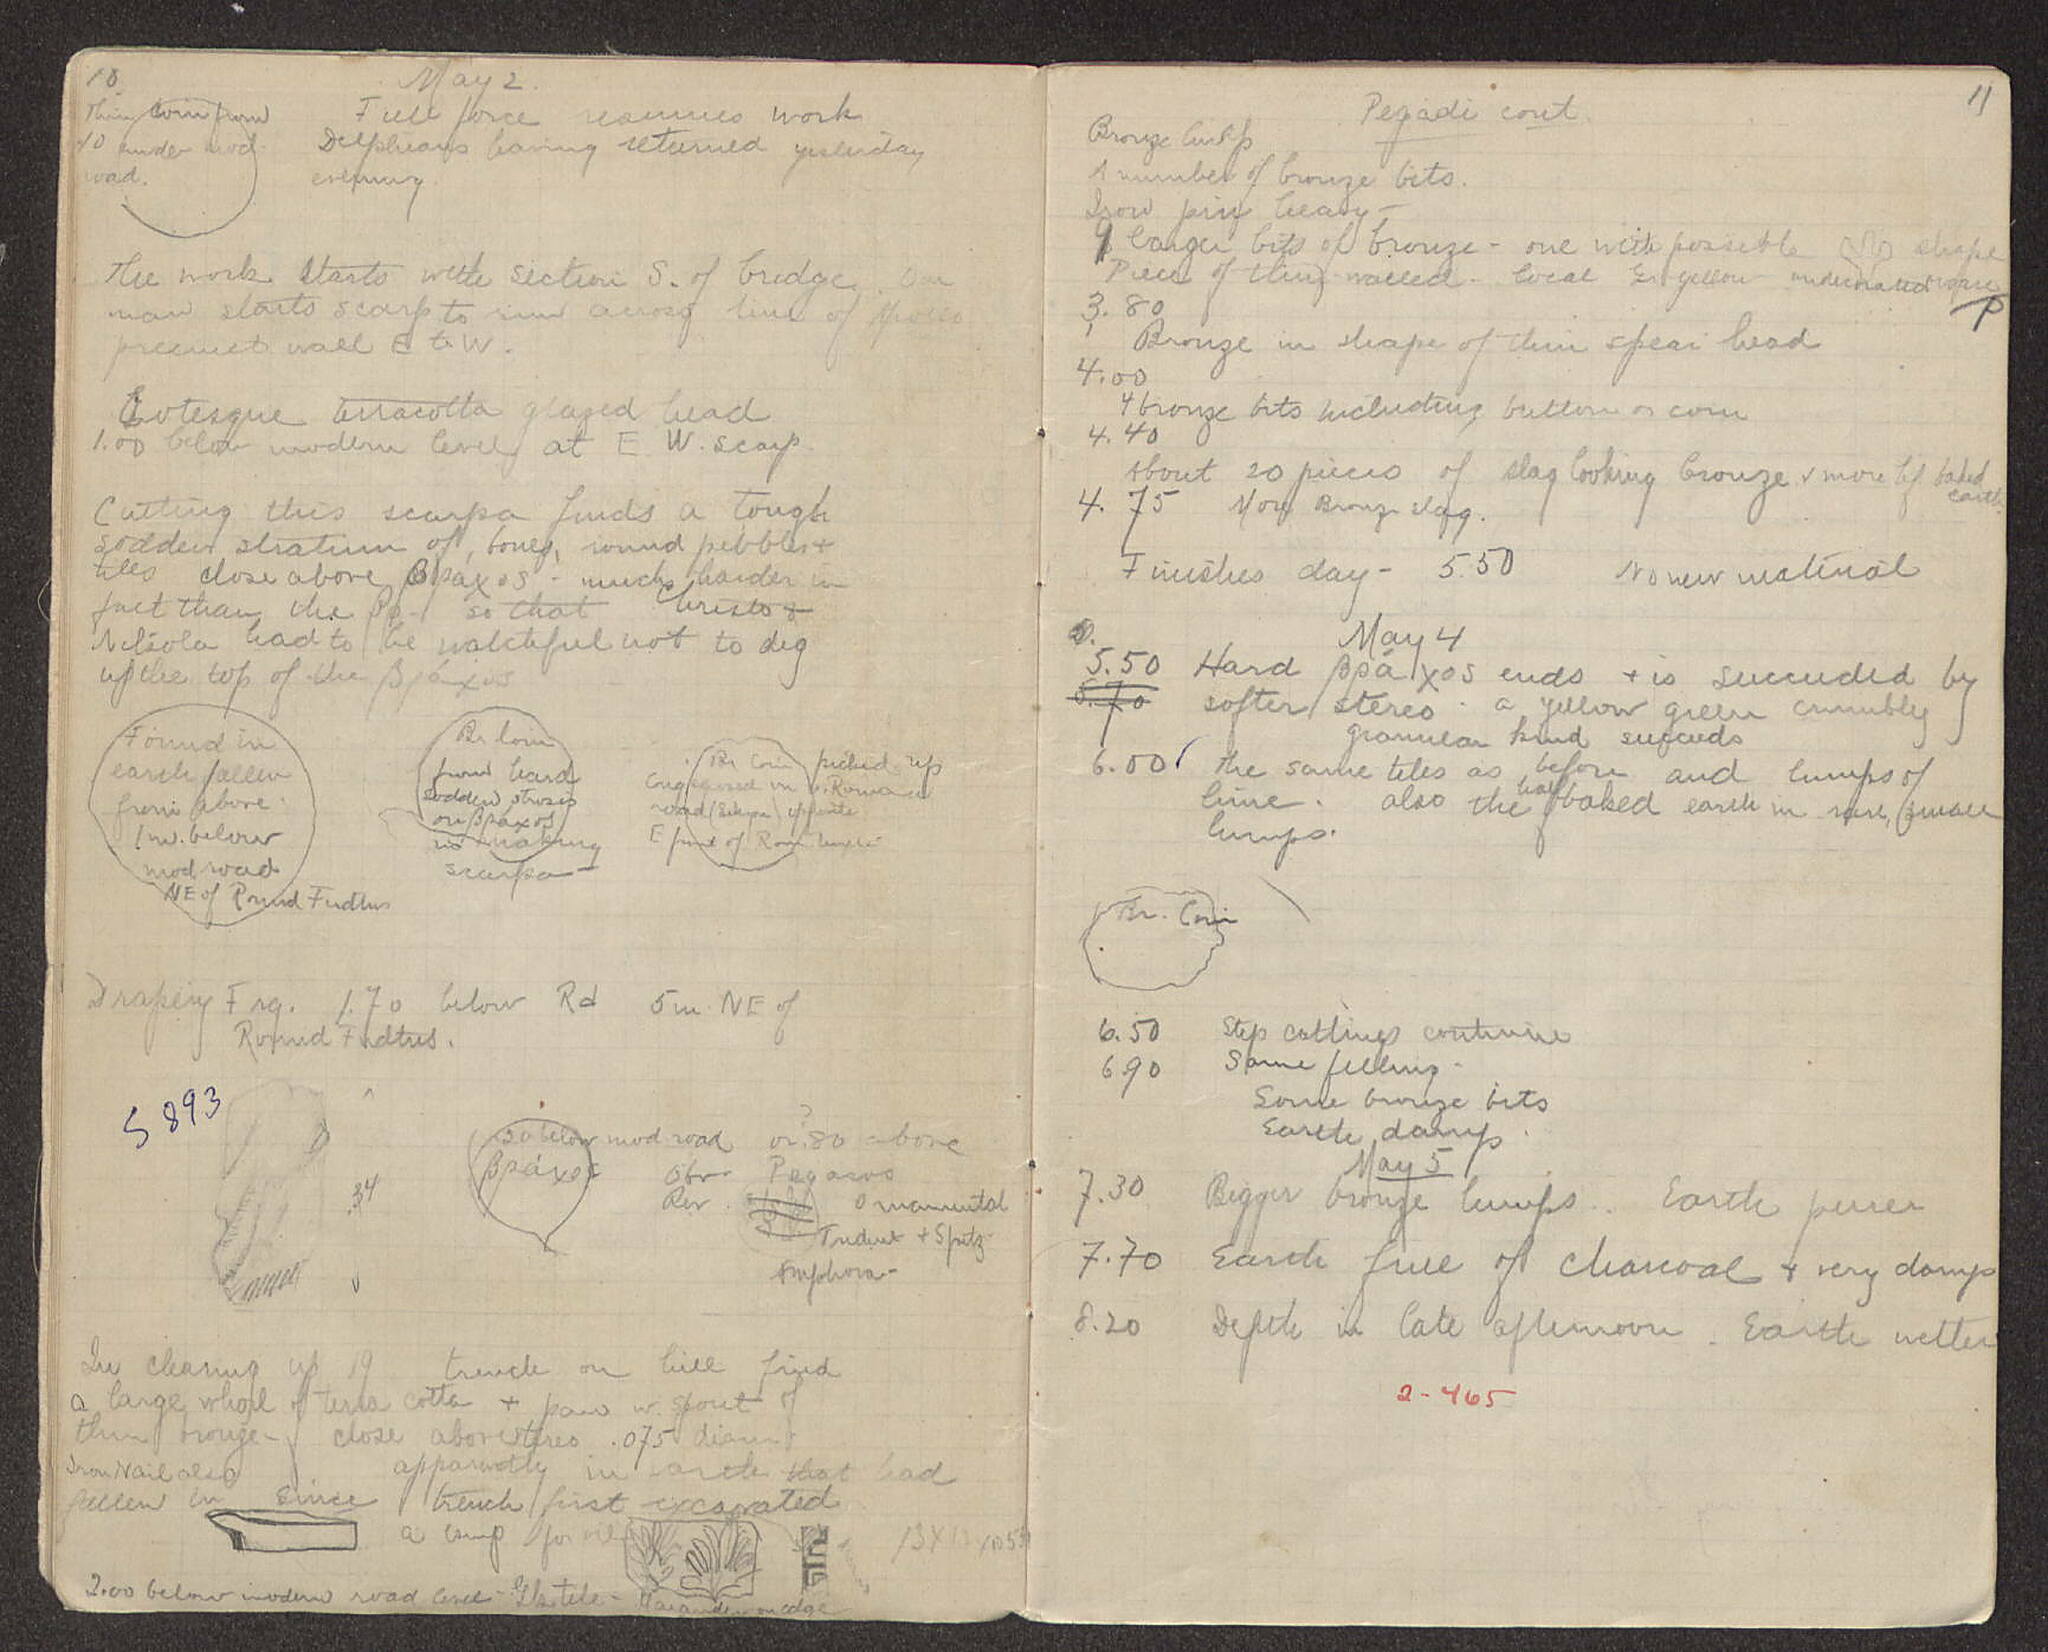 10
May 2.
Thin coin from
10 under mod.
road.
Full force resumes work
Delphians having returned yesterday
evening.
The work starts with section S. of bridge. One
man starts scarp to run across line of
precinct wall E to W.
Grotesque terracotta glazed head
1.00 below modern level at E W. scarp.
Cutting this scarpa finds a tough
sodden stratum of, bones, round pebbles +
tiles close above βράχος - much harder in
fact than the βρ- so that Christo +
Nikola had to be watchful not to dig
up the top of the βράχος
Found in
earth fallen
from above.
1 m. below
mod road
NE of Round Fndtns
Br Coin
from hard
sodden strosis
on βράχος
in making
scarpa -
Br Coin picked up
in Roman
road opposite
E of Rom
Drapery Frg. 1.70 below Rd 5m NE of
Round Fndtns.
S 893
.34
.20 below mod road or? .80 above
βράχος Obv. Pegasus
Rev. Ornamental
Trident + Spitz
Amphora -
In clearing up 19 trench on hill find
a large whorl of terra cotta + pan w. spout of
thin bronze - close above stereo .075 diam
Iron Nail also apparently in earth that had
fallen in since trench first excavated
a lamp for
13 X 13
2.00 below modern road level - tile - Maeander on edge
11
Pegadi cont.
Bronze lump
A number of bronze bits.
Iron pin heavy -
9 larger bits of bronze - one with possible shape
Piece of thin-walled - local Gr. yellow undecorated vase
P
3.80
Bronze in shape of thin spear head
4.00
4 bronze bits including button or coin
4.40
About 20 pieces of slag looking bronze + more of baked
earth
4.75 More Bronze slag.
Finishes day - 5.50 No new material
May 4
5.50 Hard βράχος ends + is succeeded by
5.70 softer stereo - a yellow green crumbly
granular kind succeeds
6.00 The same tiles as before and lumps of
lime. also the half baked earth in rare, small
lumps.
Br. Coin
6.50 Step cuttings continue
6.90 Same filling -
Some bronze bits
Earth damp.
May 5
7.30 Bigger bronze lumps.. Earth purer
7.70 Earth free of charcoal + very damp
8.20 Depth in late afternoon. Earth wetter
2-465